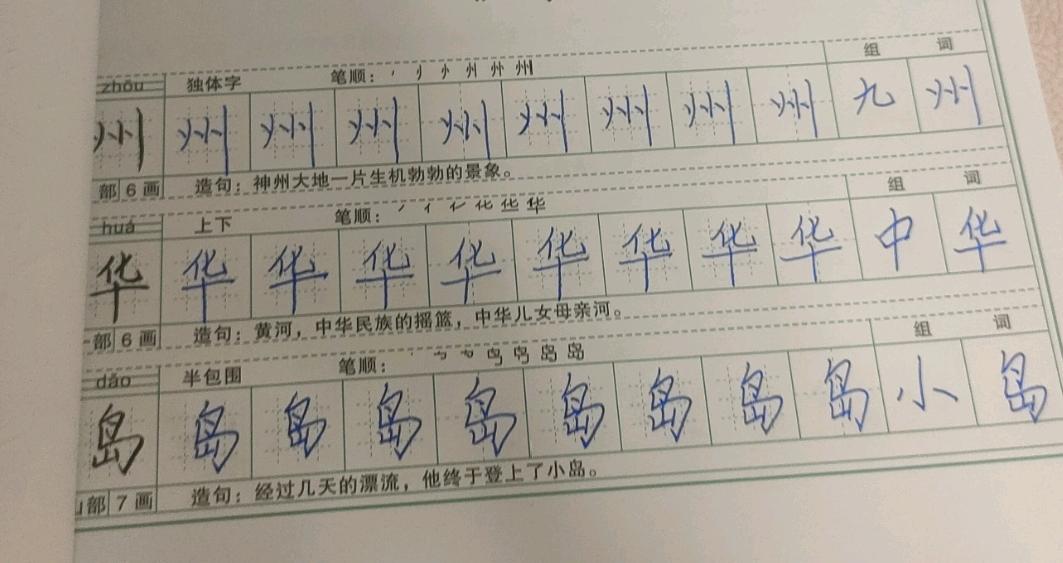 组 词
zhōu 独体字 笔顺：
州 州 州 州 州 州 州 州 州 九 州
部 6 画 造句：神州大地一片生机勃勃的景象。
组 词
huá 上下 笔顺：
华 华 华 华 华 华 华 华 华 中 华
部 6 画 造句：黄河，中华民族的摇篮，中华儿女母亲河。
组 词
dǎo 半包围 笔顺：
岛 岛 岛 岛 岛 岛 岛 岛 岛 小 岛
部 7 画 造句：经过几天的漂流，他终于登上了小岛。